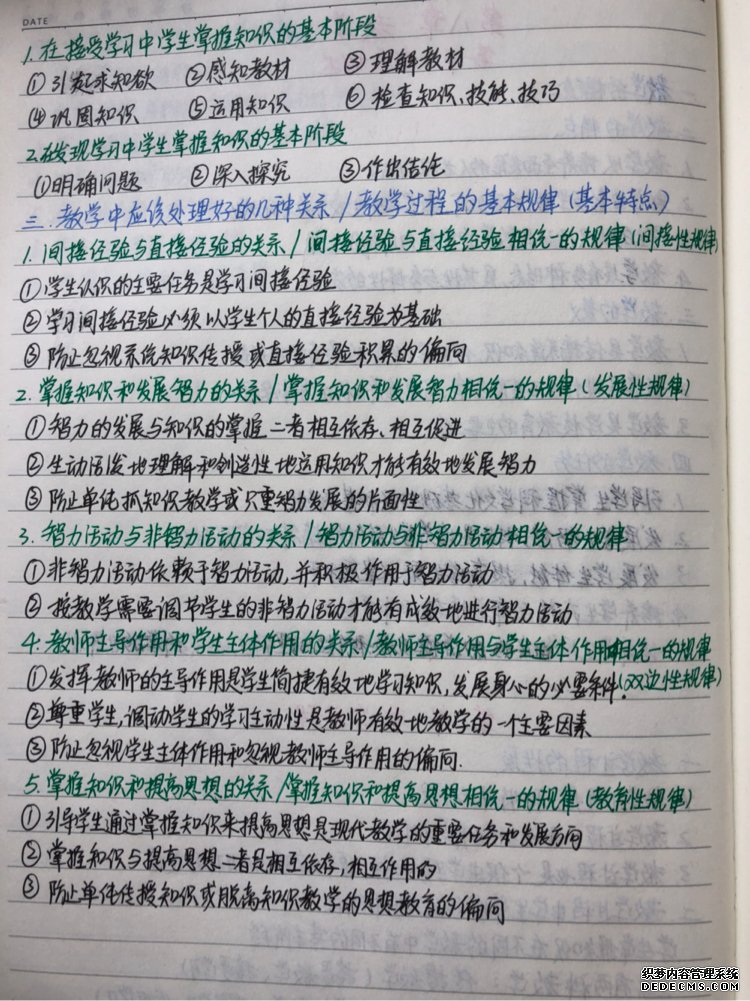 DATE
1.在接受学习中学生掌握知识的基本阶段
①引发求知欲 ②感知教材 ③理解教材
④巩固知识 ⑤运用知识 ⑥检查知识、技能、技巧
2.在发现学习中学生掌握知识的基本阶段
①明确问题 ②深入探究 ③作出结论
三.教学中应该处理好的几种关系/教学过程的基本规律(基本特点)
1.间接经验与直接经验的关系/间接经验与直接经验相统一的规律(间接性规律)
①学生认识的主要任务是学习间接经验
②学习间接经验必须以学生个人的直接经验为基础
③防止忽视系统知识传授或直接经验积累的偏向
2.掌握知识和发展智力的关系/掌握知识和发展智力相统一的规律(发展性规律)
①智力的发展与知识的掌握二者相互依存、相互促进
②生动活泼地理解和创造性地运用知识才能有效地发展智力
③防止单纯抓知识教学或只重智力发展的片面性
3.智力活动与非智力活动的关系/智力活动与非智力活动相统一的规律
①非智力活动依赖于智力活动,并积极作用于智力活动
②按教学需要调节学生的非智力活动才能有成效地进行智力活动
4.教师主导作用和学生主体作用的关系/教师主导作用与学生主体作用相统一的规律
(双边性规律)
①发挥教师的主导作用是学生简捷有效地学习知识,发展身心的必要条件.
②尊重学生,调动学生的学习主动性是教师有效地教学的一个主要因素
③防止忽视学生主体作用和忽视教师主导作用的偏向.
5.掌握知识和提高思想的关系/掌握知识和提高思想相统一的规律(教育性规律)
①引导学生通过掌握知识来提高思想是现代教学的重要任务和发展方向
②掌握知识与提高思想二者是相互依存,相互作用的
③防止单纯传授知识或脱离知识教学的思想教育的偏向
织梦内容管理系统
DEDECMS.COM